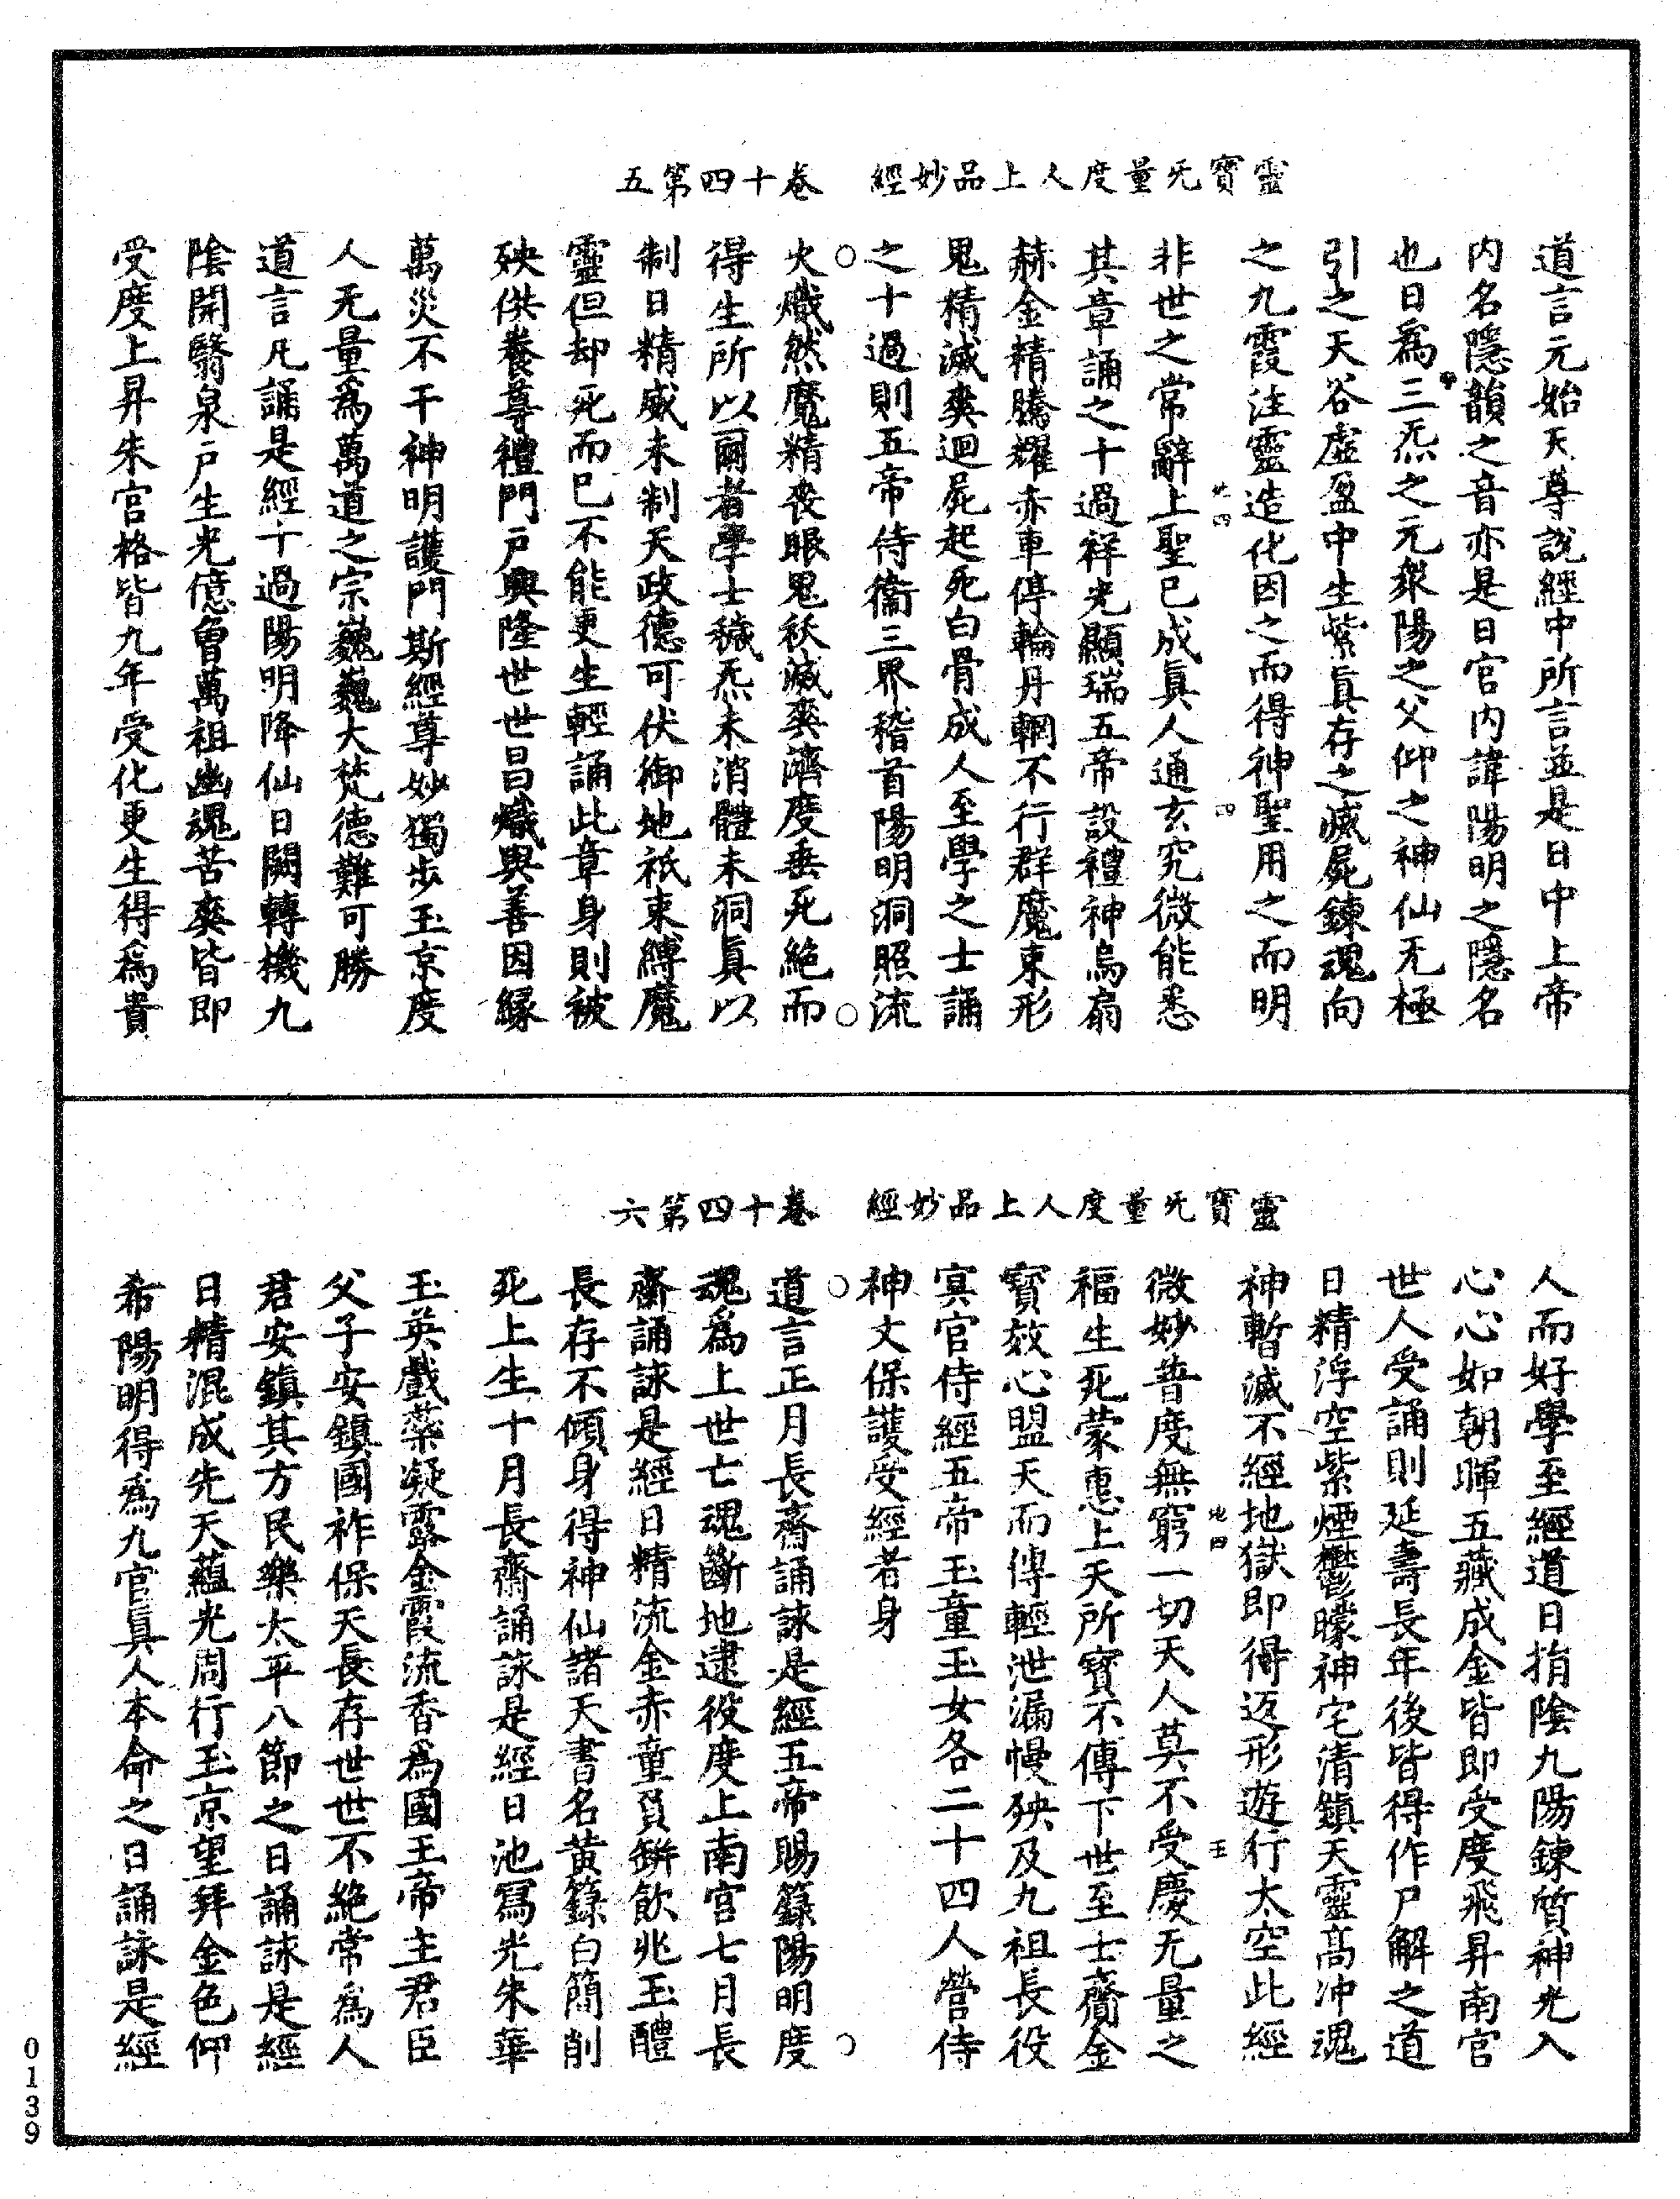 靈寶无量度人上品妙經　卷十四第五
道言元始天尊說經中所言並是日中上帝
內名隱韻之音亦是日宮內諱陽明之隱名
也日爲三炁之元衆陽之父仰之神仙无極
引之天谷虛盈中生紫眞存之滅屍鍊魂向
之九霞注靈造化因之而得神聖用之而明
非世之常辭上聖已成眞人通玄究微能悉
其章誦之十過祥光顯瑞五帝設禮神烏扇
赫金精騰耀赤車停輪丹輞不行群魔束形
鬼精滅爽迴屍起死白骨成人至學之士誦
之十過則五帝侍衞三界稽首陽明洞照流
火熾然魔精喪眼鬼祅滅爽濟度垂死絕而
得生所以爾者學士穢炁未消體未洞眞以
制日精威未制天政德可伏御地祇束縛魔
靈但却死而已不能更生輕誦此章身則被
殃供養尊禮門戶興隆世世昌熾與善因緣
萬災不干神明護門斯經尊妙獨步玉京度
人无量爲萬道之宗巍巍大梵德難可勝
道言凡誦是經十過陽明降仙日闕轉機九
陰開翳泉戶生光億曾萬祖幽魂苦爽皆即
受度上昇朱宮格皆九年受化更生得爲貴
靈寶无量度人上品妙經　卷十四第六
人而好學至經道日揹陰九陽鍊質神光入
心心如朝暉五藏成金皆即受度飛昇南宮
世人受誦則延壽長年後皆得作尸解之道
日精浮空紫煙鬱曚神宅清鎮天靈高冲魂
神暫滅不經地獄即得返形遊行太空此經
微妙普度無窮一切天人莫不受慶无量之
福生死蒙惠上天所寶不傳下世至士齎金
寶效心盟天而傳輕泄漏慢殃及九祖長役
冥官侍經五帝玉童玉女各二十四人營侍
神文保護受經者身
道言正月長齋誦詠是經五帝賜籙陽明度
魂爲上世亡魂斷地逮役度上南宮七月長
齋誦詠是經日精流金赤童負缾飲兆玉醴
長存不傾身得神仙諸天書名黃籙白簡削
死上生十月長齋誦詠是經日池寫光朱華
玉英戲蘂凝露金霞流香爲國王帝主君臣
父子安鎮國祚保天長存世世不絕常爲人
君安鎮其方民樂太平八節之日誦詠是經
日精混成先天蘊光周行玉京望拜金色仰
希陽明得爲九宮眞人本命之日誦詠是經
0139